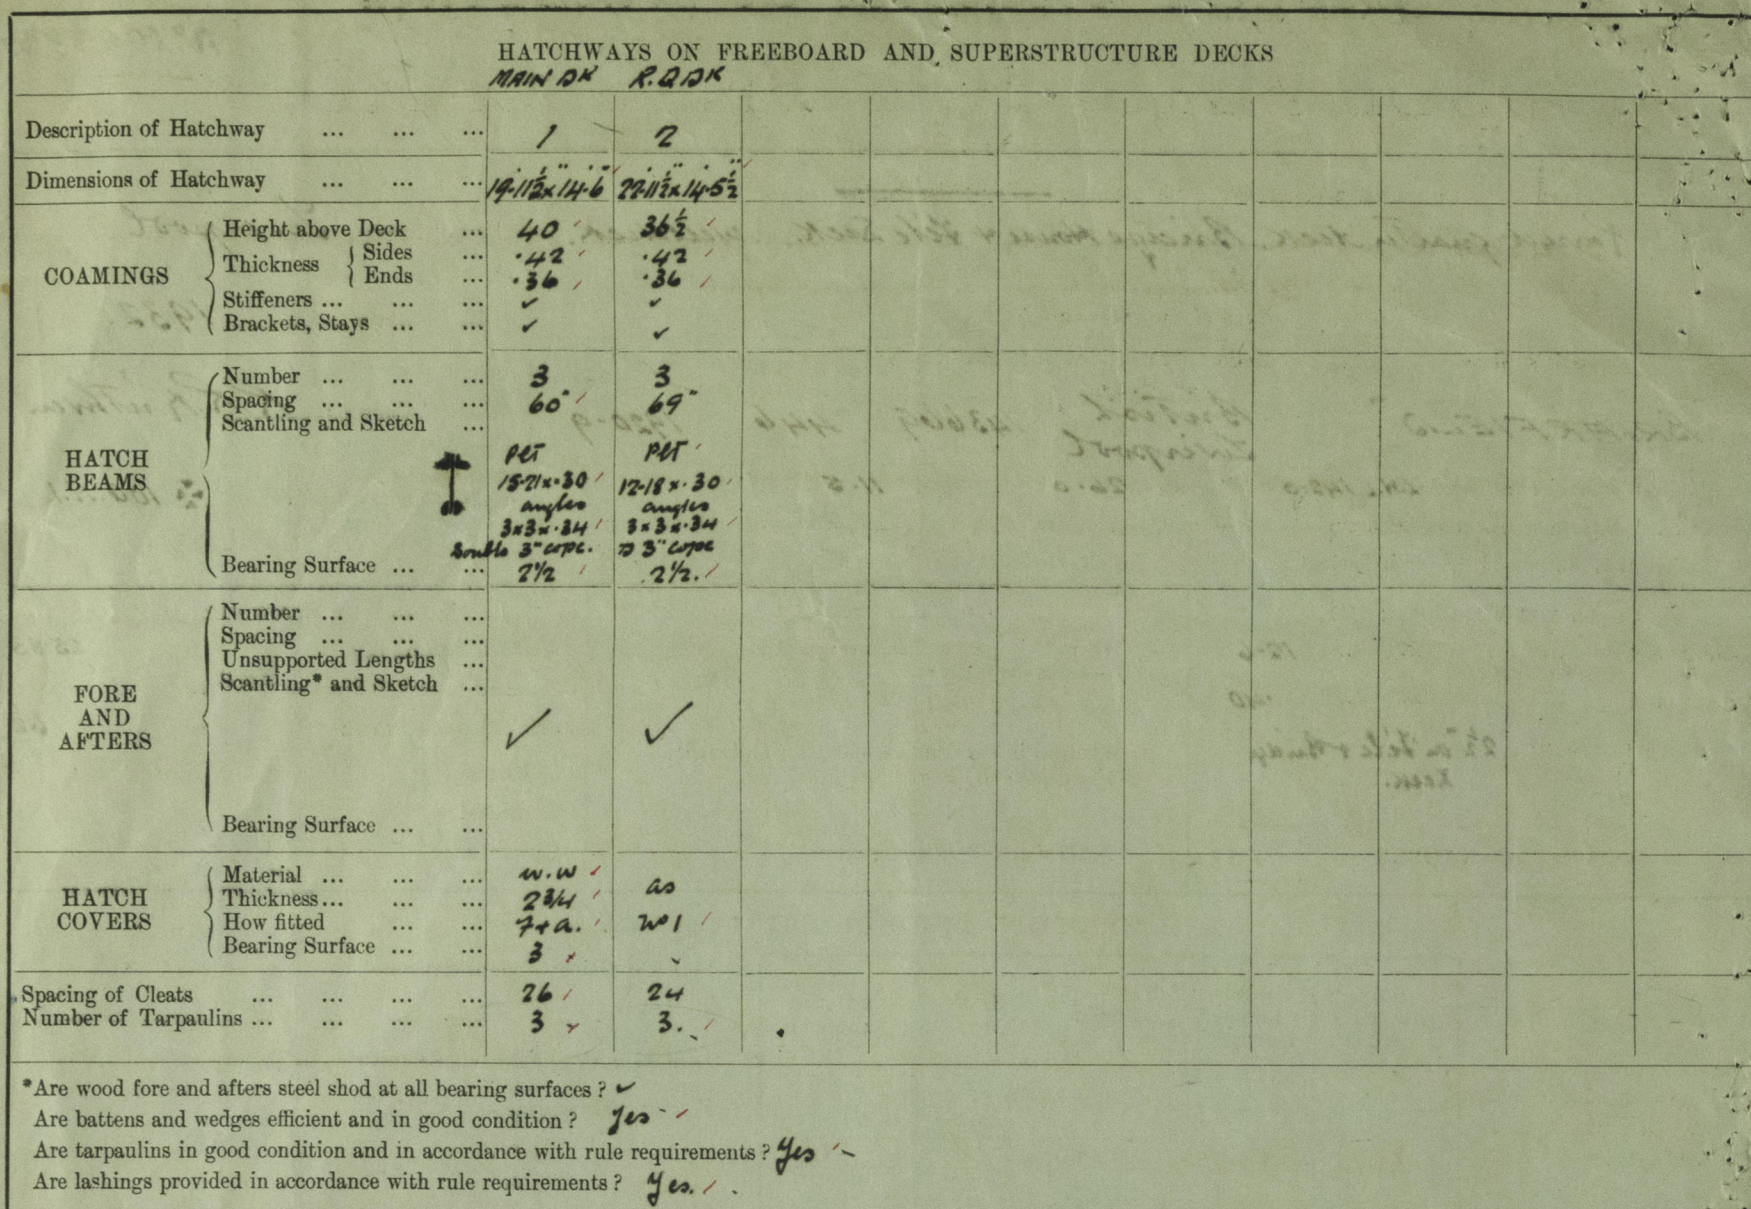 HATCHWAYS ON FREEBOARD AND SUPERSTRUCTURE DECKS
MAIN DK R.Q DK
Description of Hatchway ... ... ... 1 2
Dimensions of Hatchway ... ... ... 19'-11½" x 14'-6" 22'-11½" x 14'-5½"
COAMINGS
Height above Deck ... 40 36½
Thickness { Sides ... .42 .42
Ends ... .36 .36
Stiffeners ... ... ... ✓ ✓
Brackets, Stays ... ... ✓ ✓
HATCH BEAMS
Number ... ... ... 3 3
Spacing ... ... ... 60" 69"
Scantling and Sketch ...
15-21 x .30 12-18 x .30
angles angles
3 x 3 x .34 3 x 3 x .34
Double 3" cope. D 3" cope
Bearing Surface ... ... 2½ 2½.
FORE AND AFTERS
Number ... ... ...
Spacing ... ... ...
Unsupported Lengths ...
Scantling* and Sketch ...
✓ ✓
Bearing Surface ... ...
HATCH COVERS
Material ... ... ... W.W as
Thickness ... ... ... 2¾
How fitted ... ... F+a. No 1
Bearing Surface ... ... 3
Spacing of Cleats ... ... ... ... 26 24
Number of Tarpaulins ... ... ... ... 3 3.
*Are wood fore and afters steel shod at all bearing surfaces? ✓
Are battens and wedges efficient and in good condition? Yes
Are tarpaulins in good condition and in accordance with rule requirements? Yes
Are lashings provided in accordance with rule requirements? Yes.